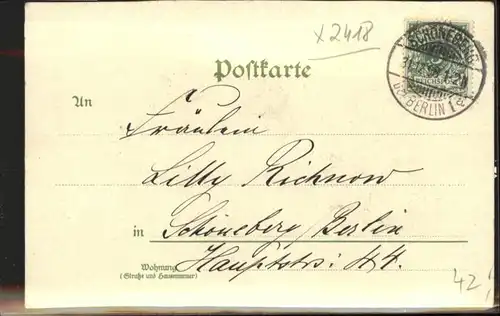 x2418
SCHÖNEBERG
BERLIN
Postkarte
An
Fräulein
Lilly Richnow
in Schöneberg Berlin
Wohnung Hauptstr: 44.
(Straße und Hausnummer)
42